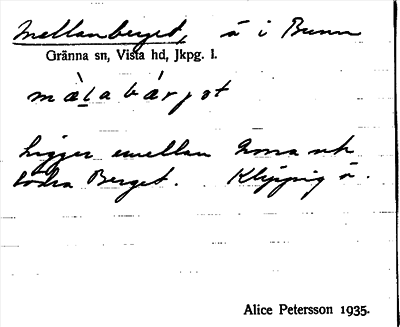 Mellanberget, ö i Bunn
Gränna sn, Vista hd, Jkpg. l.
mälabärjət
Ligger emellan Norra och
Södra Berget. Klippig ö.
Alice Petersson 1935.